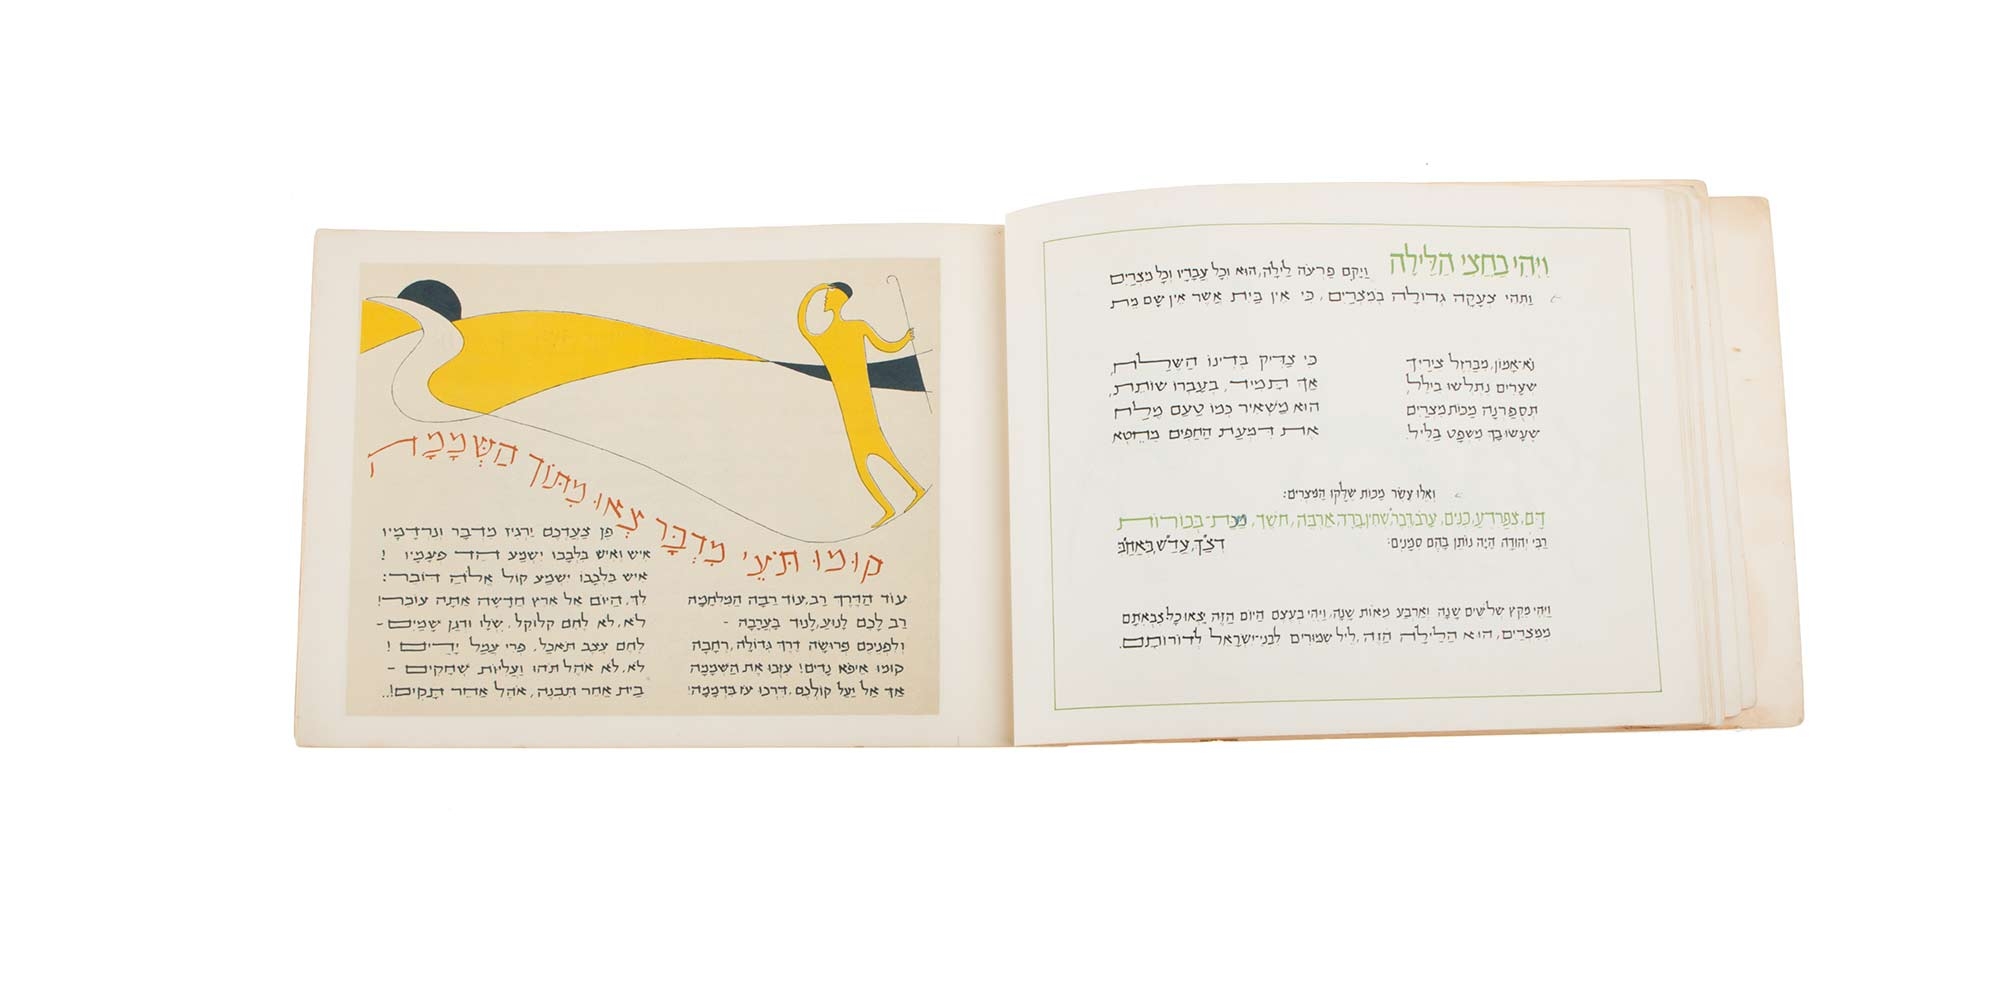 ויהי בחצי הלילה ויקם פרעה לילה, הוא וכל עבדיו וכל מצרים
ותהי צעקה גדולה במצרים, כי אין בית אשר אין שם מת
נא־אמון, מברזל ציריך
שערים נתלשו בליל,
תסופרנה מכות מצרים
שעשו בך משפט בליל.
כי צדיק בדינו השלח,
אך תמיד, בעברו שותת,
הוא משאיר כמו טעם מלח
את דמעת החפים מחטא
ואלו עשר מכות שלקו המצרים:
דם, צפרדע, כנים, ערוב, דבר, שחין, ברד, ארבה, חשך, מכת־בכורות
רבי יהודה היה נותן בהם סמנים: דצ"ך, עד"ש, באח"ב
ויהי מקץ שלשים שנה וארבע מאות שנה, ויהי בעצם היום הזה יצאו כל צבאותם
ממצרים, הוא הלילה הזה, ליל שמורים לבני־ישראל לדורותם.
קומו תעי מדבר צאו מתוך השממה
עוד הדרך רב, עוד רבה המלחמה
רב לכם לנוע, לנוד בערבה -
ולפניכם פרושה דרך גדולה, רחבה
קומו איפוא נדים! עזבו את השממה
אך אל יעל קולכם, דרכו עז בדממה!
פן צעדכם ירגיז מדבר ונרדמיו
איש ואיש בלבבו ישמע הד פעמיו !
איש בלבבו ישמע קול אלה דובר:
לך, היום אל ארץ חדשה אתה עובר!
לא, לא לחם קלוקל, שלו ודגן שמים -
לחם עצב תאכל, פרי עמל ידים !
לא, לא אהל תהו ועליות שחקים -
בית אחר תבנה, אהל אחר תקים!..